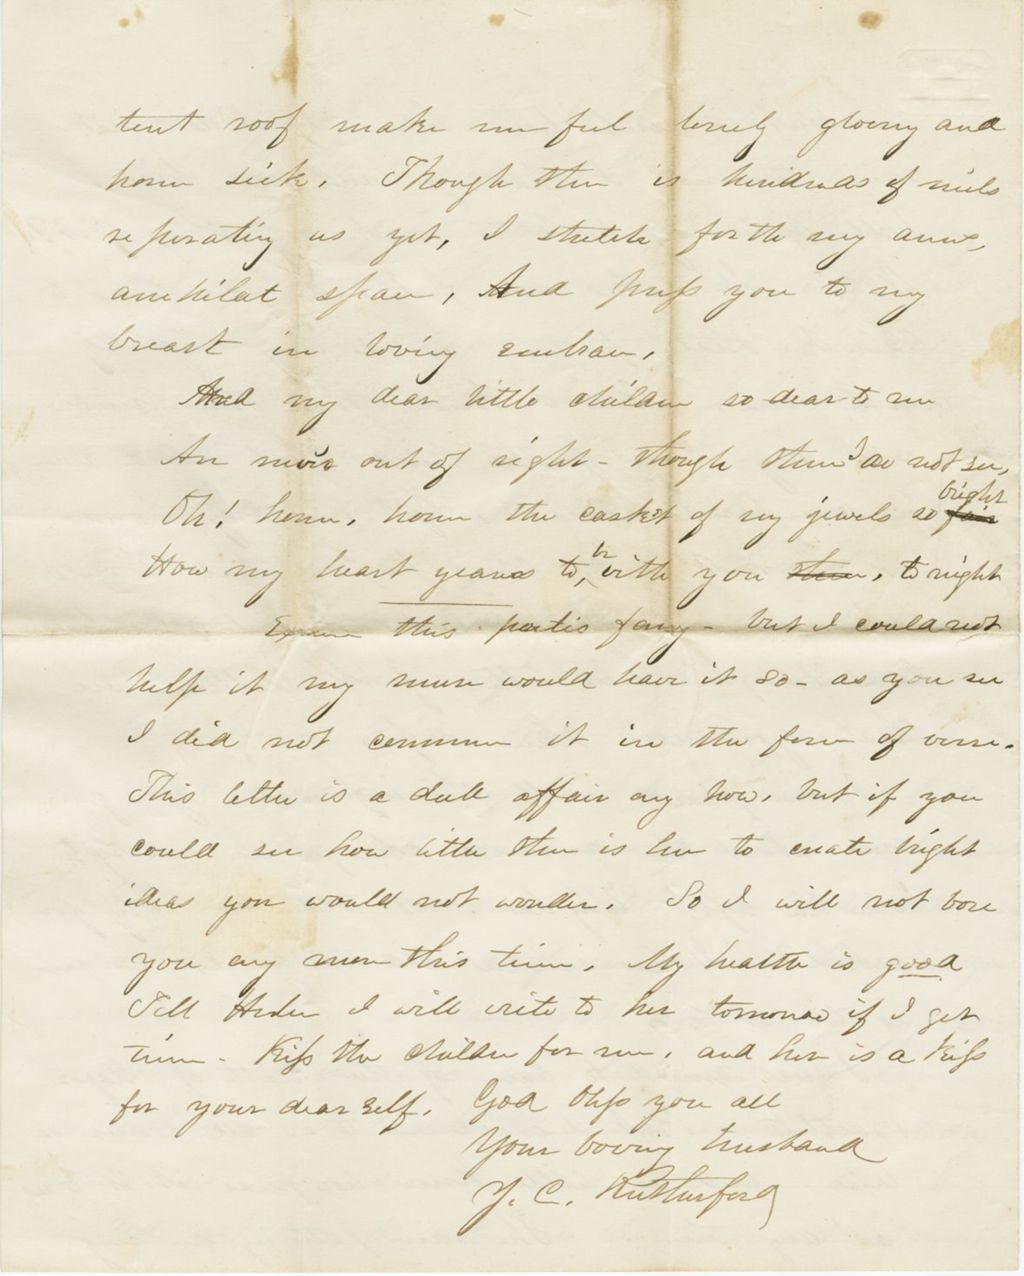 tent roof make me feel lonely gloomy and
home sick. Though there is hundreds of miles
seperating us yet, I stretch forth my arms,
annihilat space, And press you to my
breast in loving embrace.
And my dear little children so dear to me
Are now out of sight - though them I do not see,
Oh! home, home the casket of my jewels so fair bright
How my heart yearns to be with you there, to night
Excuse this poetic fancy - but I could not
help it my muse would have it so - as you see
I did not commence it in the form of verse.
This letter is a dull affair any how, but if you
could see how little there is here to create bright
ideas you would not wonder. So I will not bore
you any more this time. My health is good
Tell I will write to her tomorrow if I get
time - Kiss the children for me, and here is a Kiss
for your dear self. God bless you all
Your loving husband
J. C. Rutherford